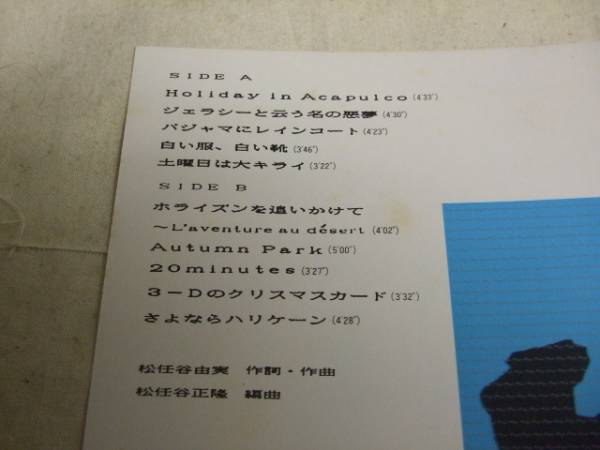 SIDE A
Holiday in Acapulco (4'33")
ジェラシーと云う名の悪夢 (4'30")
パジャマにレインコート (4'23")
白い服、白い靴 (3'46")
土曜日は大キライ (3'22")
SIDE B
ホライズンを追いかけて
〜L'aventure au désert (4'02")
Autumn Park (5'00")
20minutes (3'27")
3-Dのクリスマスカード (3'32")
さよならハリケーン (4'28")
松任谷由実 作詞・作曲
松任谷正隆 編曲